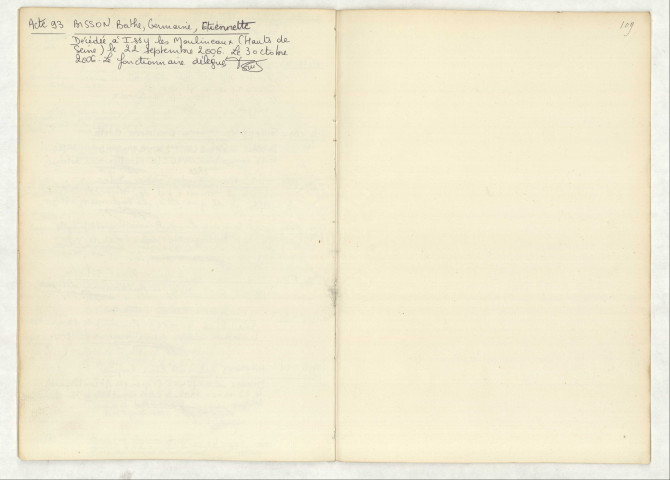 Acte 93 BISSON Bathe, Germaine, Etiennette
Décédée à Issy les Moulineaux (Hauts de
Seine) le 22 septembre 2006. Le 3 octobre
2006. Le fonctionnaire délégué
109